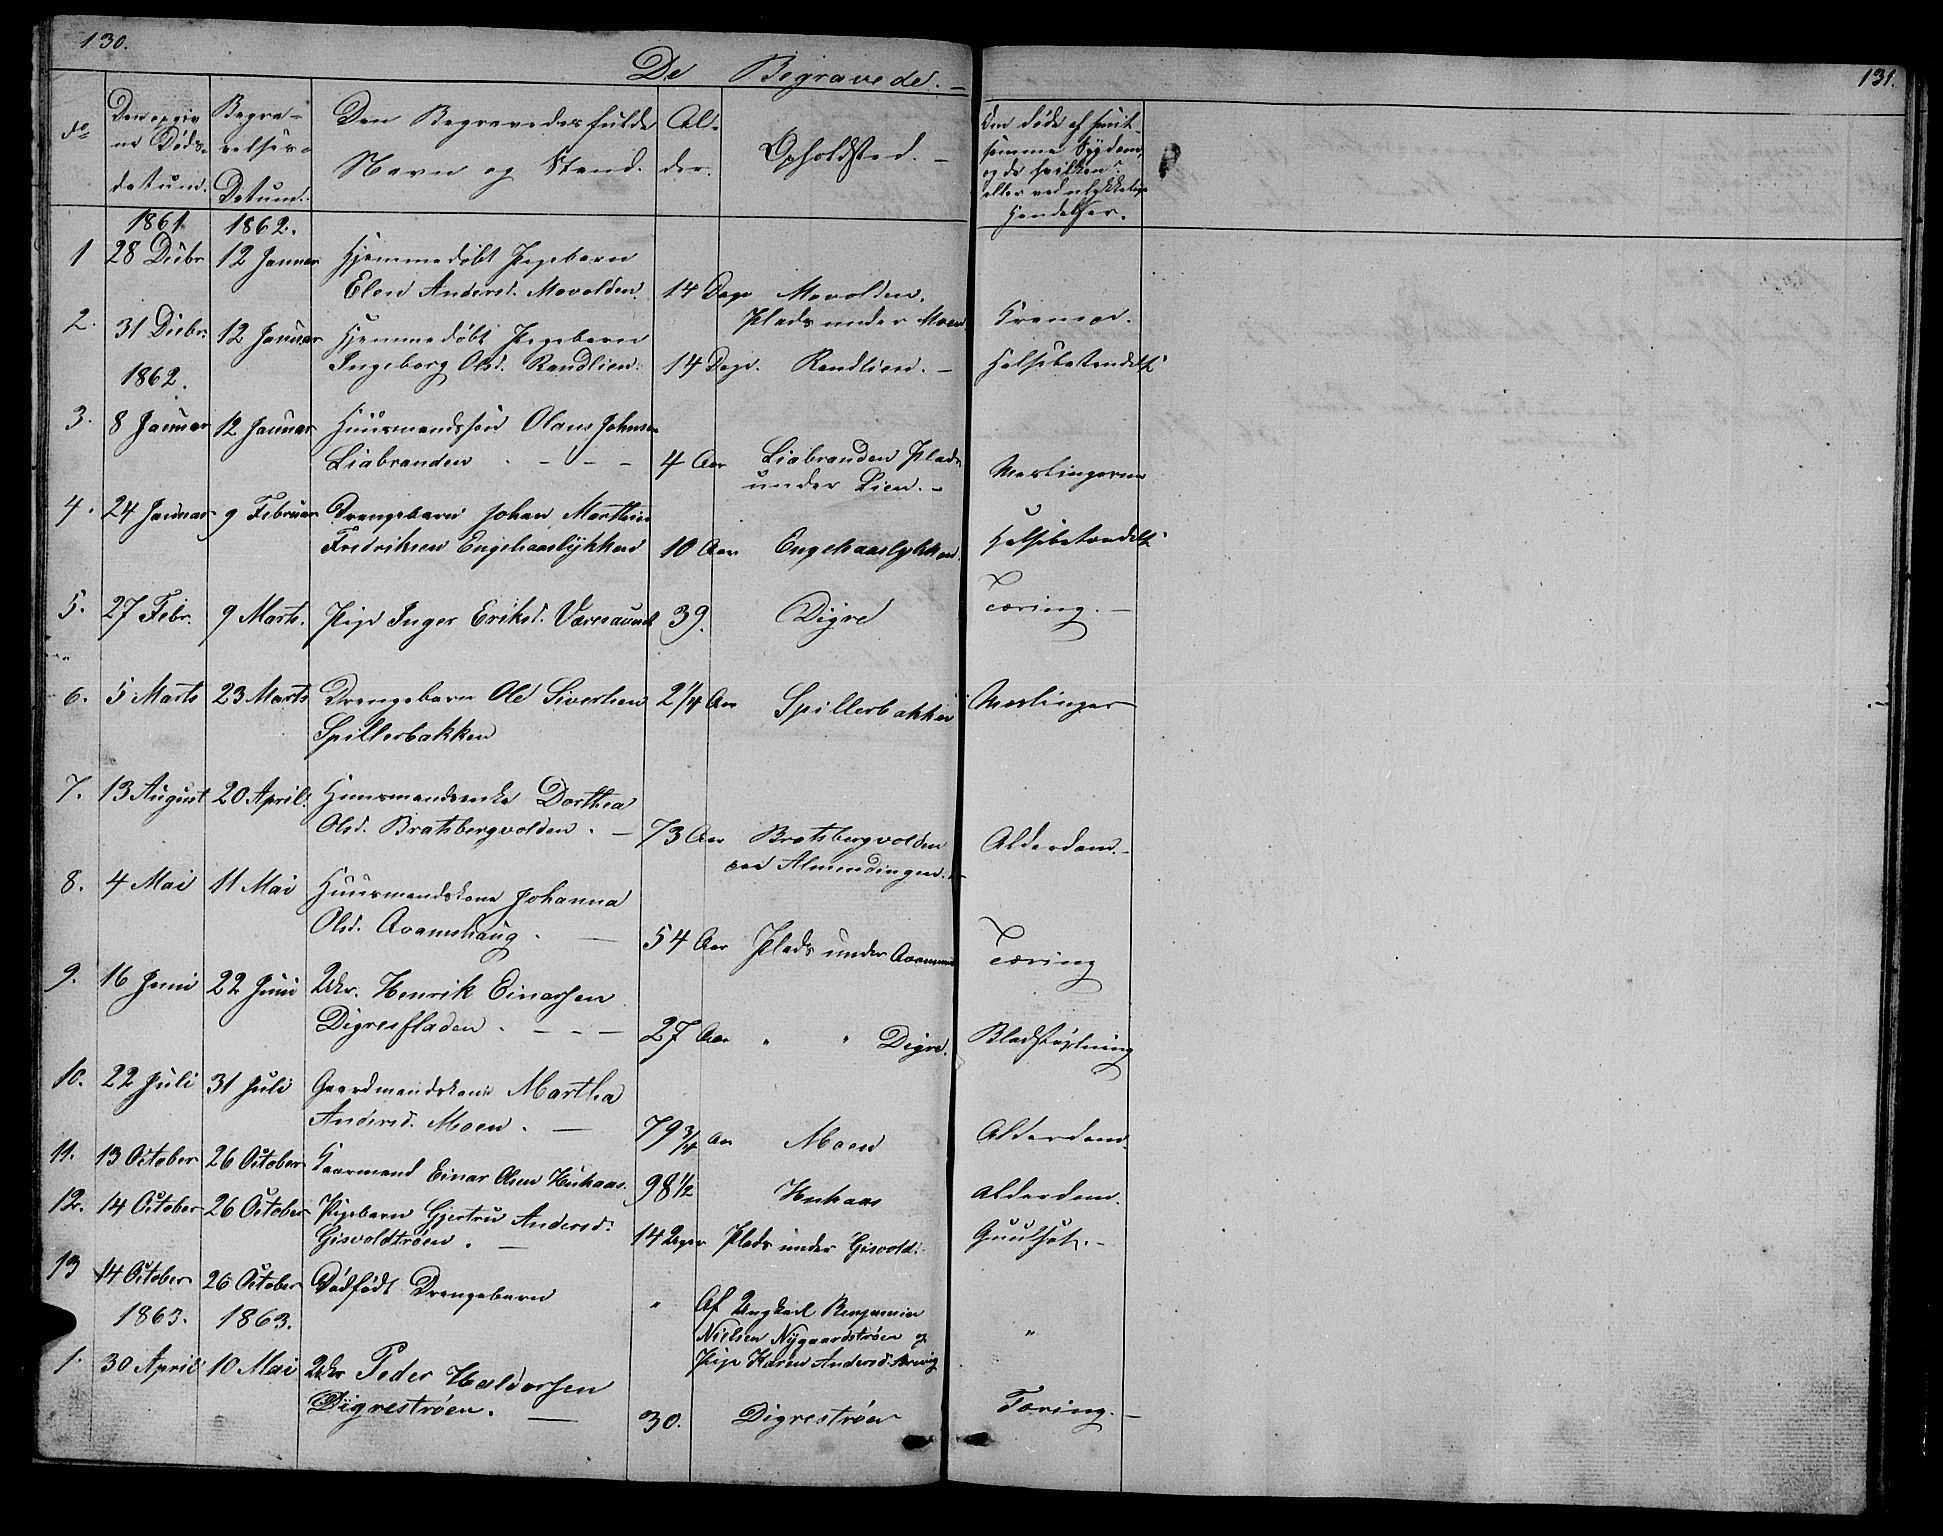 130.
131.
De Begravede. –
No
Den opgivne Dødsdatum.
Begravelses-Datum.
Den Begravedes fulde Navn og Stand.
Alder.
Opholdsted. –
Om døde af smitsomme Sygdom, og da hvilken? eller ved ulykkelige Hendelser.
1861 1862.
1 28 Decbr 12 Januar Hjemmedøbt Pigebarn
Elen Andersd. Movolden. 14 Dage Movolden.
Plads under Moen Krampe.
2. 31 Decbr. 12 Januar Hjemmedøbt Pigebarn
Ingeborg Olsd. Rendlien. 14 Dage. Rendlien. – Halsebetendelse
1862.
3. 8 Januar 12 Januar Huusmandssøn Olaus Johnsen
Liabranden . – – – 4 Aar Liabranden Plads
under Lien. – Meslingerne
4. 24 Januar 9 Februar Drengebarn Johan Marthin
Fredriksen Engehaaslykken 10 Aar Engehaaslykken. Halsebetændelse
5. 27 Febr. 9 Marts. Pige Inger Eriksd. Væresaunet 39. Digre Tæring. –
6. 5 Marts 23 Marts Drengebarn Ole Sivertsen 2 1/4 Aar Spillerbakken Meslinger
Spillerbakken
7. 13 August 20 April. Huusmandsenke Dorthea
Olsd. Bratsbergvolden . – 73 Aar Bratsbergvolden
paa Almendingen. – Alderdom. –
8. 4 Mai 11 Mai Huusmandskone Johanna
Olsd. Avamshaug . – 54 Aar Plads under Tæring
9. 16 Juni 22 Juni Ukr. Henrik Einarsen
Digresfladen . – – – 27 Aar " " Digre. Blodstyrtning
10. 22 Juli 31 Juli Gaardmandskone Martha
Andersd. Moen . – 79 3/4 Aar Moen Alderdom.
11. 13 October 26 October Kaarmand Einar Olsen Huhaas. 98 1/2 Huhaas Alderdom.
12. 14 October 26 October Pigebarn Gjertru Andersd.
Gisvoldtrøen . – 14 Uger Plads under Gisvold. Guulsot. –
13 14 October 26 October Dødfødt Drengebarn " Af Ungkarl Benjamin
Nielsen Nygaardstrøen og "
Pige Karen Andersd.
1863. 1863.
1. 30 April 10 Mai Ukr Peder Haldorsen
Digrestrøen. – 30. Digrestrøen Tæring. –